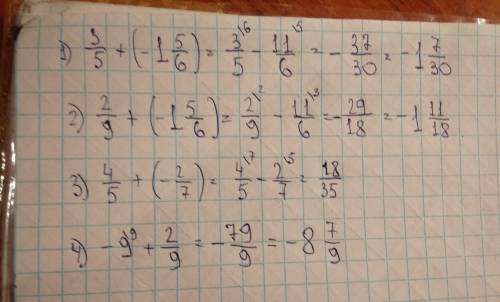 1) 3/5 + (-1 5/6) = 3\6/5 - 11\5/6 = - 37/30 = -1 7/30
2) 2/9 + (-1 5/6) = 2\2/9 - 11\3/6 = - 29/18 = -1 11/18
3) 4/5 + (- 2/7) = 4\7/5 - 2\5/7 = 18/35
4) -9\9 + 2/9 = - 79/9 = -8 7/9